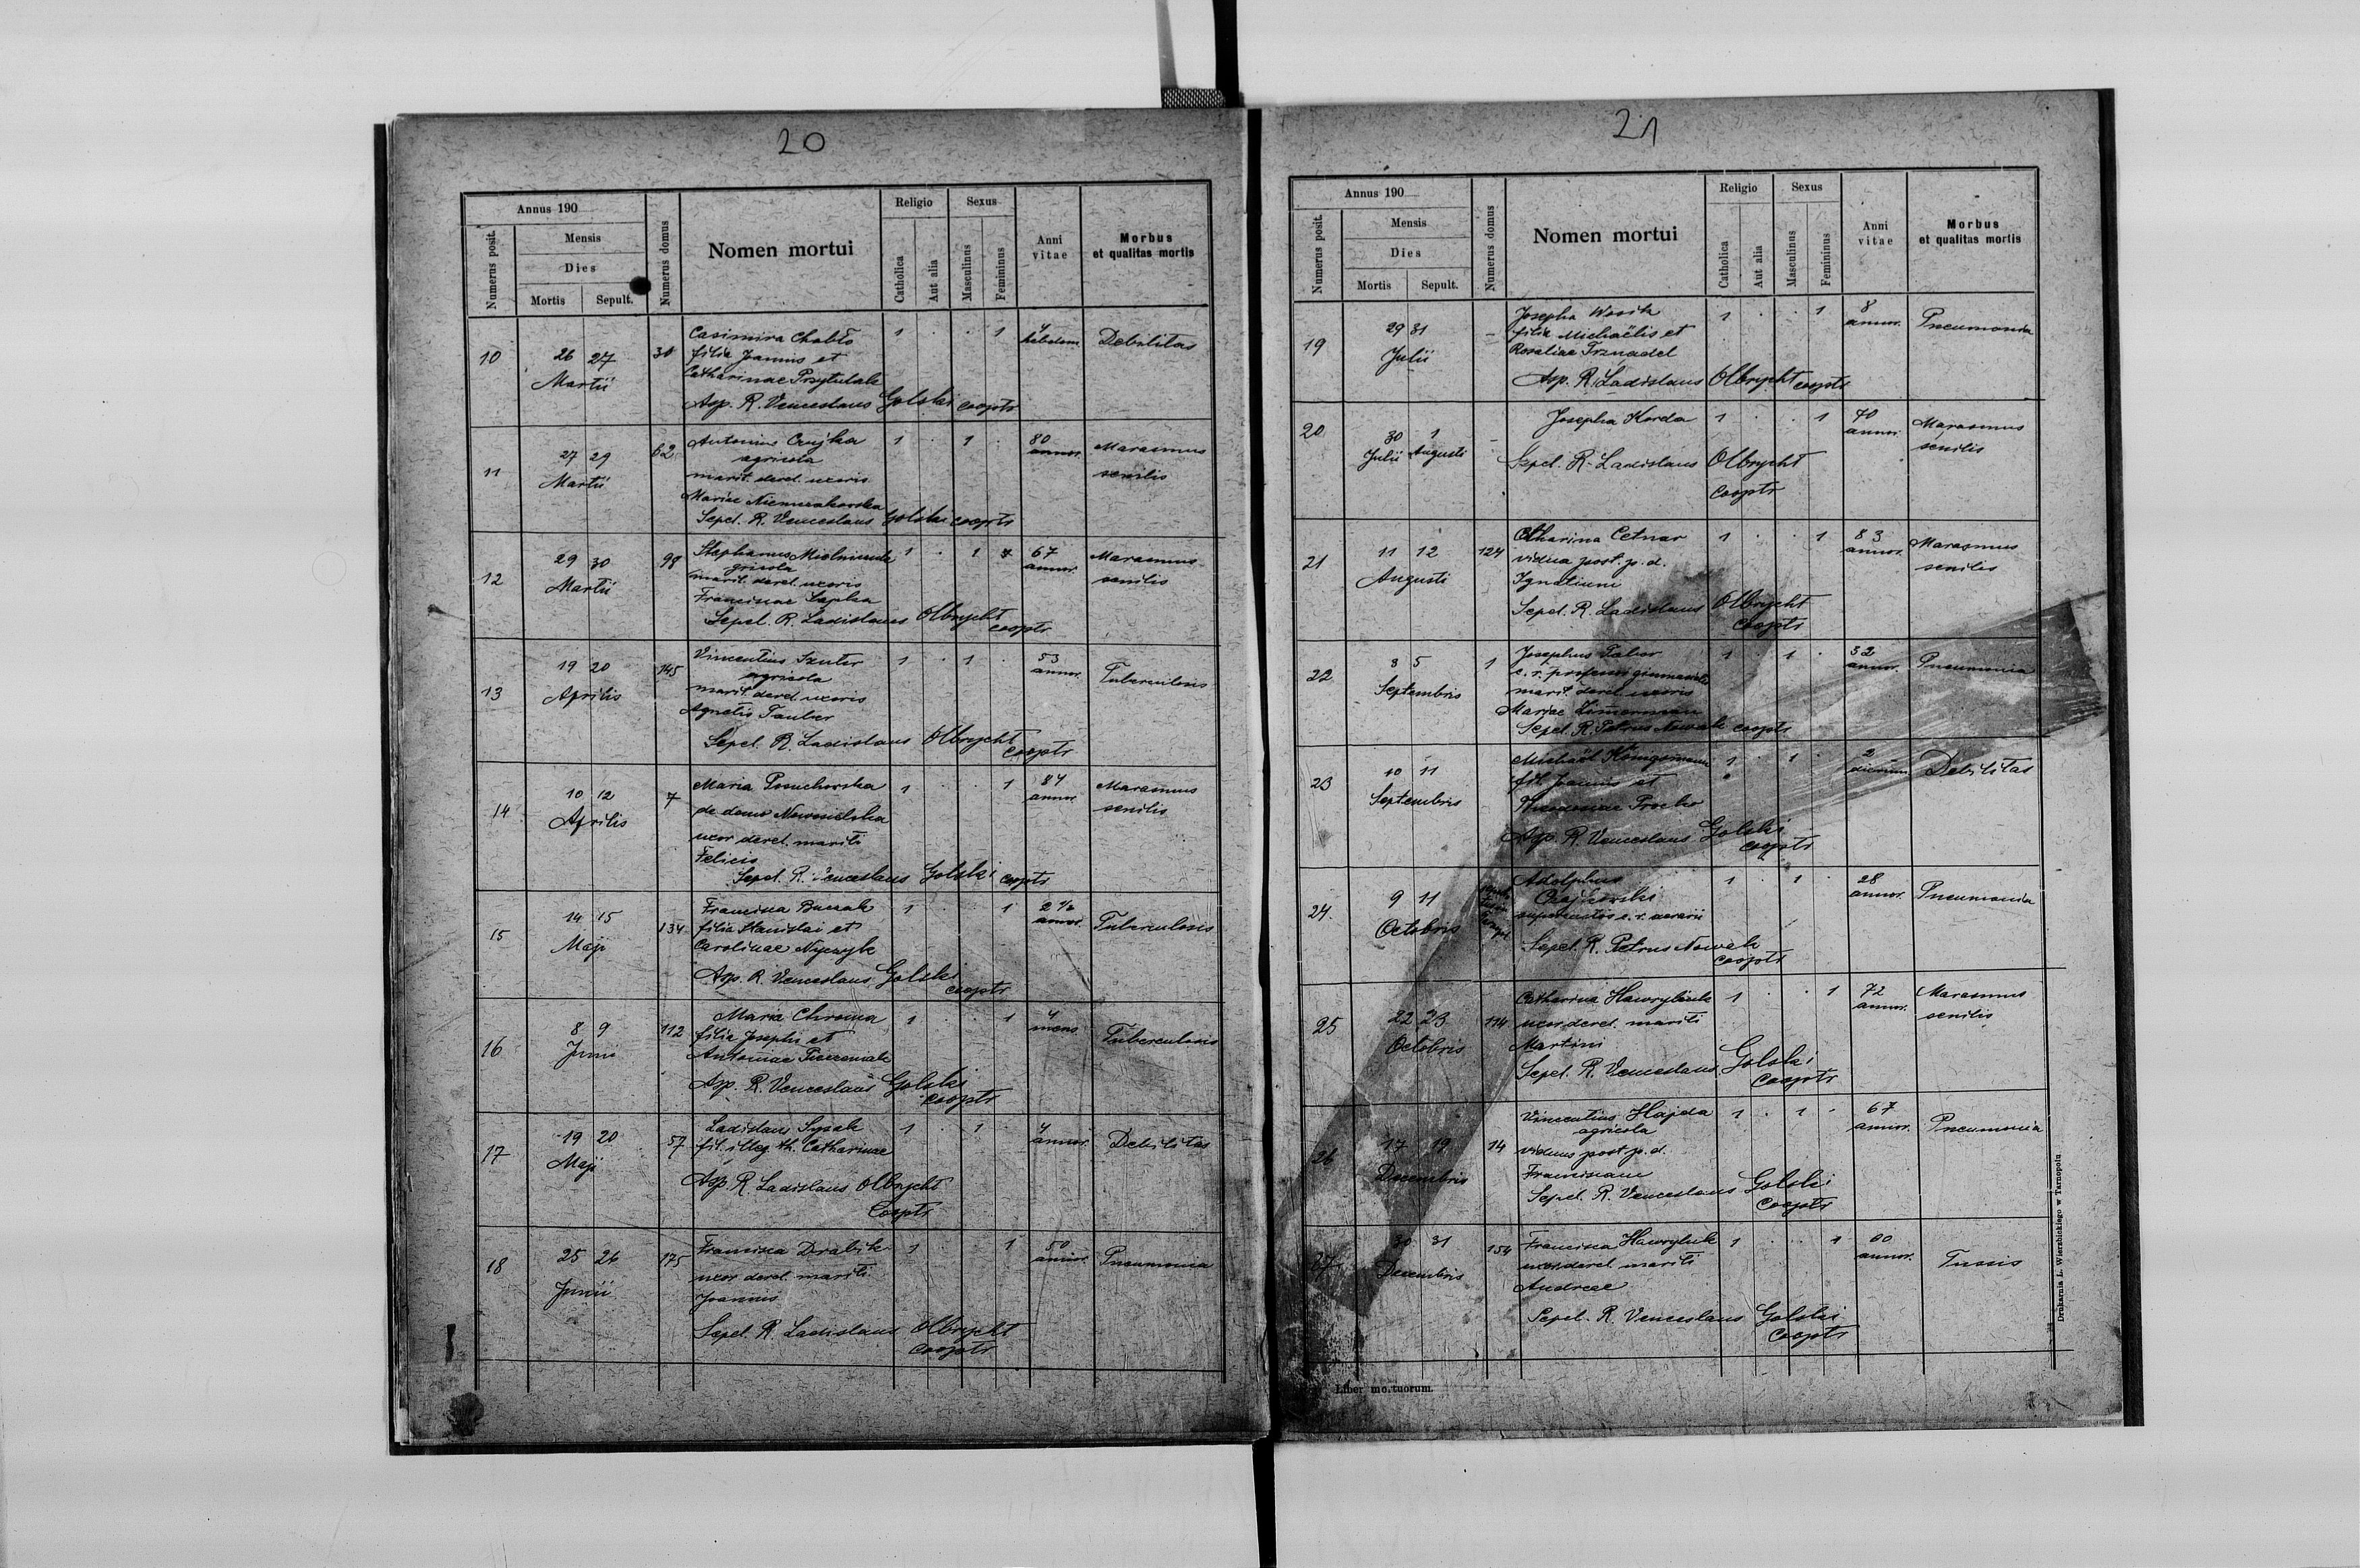 20
Annus 190
Numerus posit.
Mensis
Dies
Mortis Sepult.
Numerus domus
Nomen mortui
Religio
Catholica
Aut alia
Sexus
Masculinus
Femininus
Anni vitae
Morbus
et qualitas mortis
10 26 27 Martii 30 Casimira Chabło 1 . . 1 4 hebdom. Debilitas
filia Joannis et
Catharinae Przytulak
Asp. R. Venceslaus Golski cooptr
11 27 29 Martii 62 Antonius 1 . 1 . 80 annor. Marasmus senilis
agricola
marit. derel. uxoris
Mariae
Sepel. R. Venceslaus Golski cooptr
12 29 30 Martii 98 Stephanus Mielniczuk 1 . 1 67 annor. Marasmus senilis
gricola
marit. derel. uxoris
Franciscae Sapka
Sepel. R. Ladislaus Olbrycht cooptr
13 19 20 Aprilis 145 Vincentius Szuter 1 . 1 . 53 annor. Tuberculosis
agricola
marit. derel. uxoris
Agnetis Tauber
Sepel. R. Ladislaus Olbrycht cooptr
14 10 12 Aprilis 7 Maria Posuchowska 1 . . 1 84 annor. Marasmus senilis
de domo Nowosielska
uxor derel. mariti
Felicis
Sepel. R. Venceslaus Golski cooptr
15 14 15 Maji 134 Francisca Buczak 1 . . 1 2 ½ annor. Tuberculosis
filia Stanislai et
Carolinae Nyczyk
Asp. R. Venceslaus Golski cooptr
16 8 9 Junii 112 Maria Chroma 1 . . 1 4 mens. Tuberculosis
filia Josephi et
Antoninae
Asp. R. Venceslaus Golski cooptr
17 19 20 Maji 57 Ladislaus Sysak 1 . 1 . 4 annor. Debilitas
fil. illeg. th. Catharinae
Asp. R. Ladislaus Olbrycht
Cooptr
18 25 26 Junii 175 Francisca Drabik 1 . . 1 50 annor. Pneumonia
uxor derel. mariti
Joannis
Sepel. R. Ladislaus Olbrycht
cooptr
21
Annus 190
Numerus posit.
Mensis
Dies
Mortis Sepult.
Numerus domus
Nomen mortui
Religio
Catholica
Aut alia
Sexus
Masculinus
Femininus
Anni vitae
Morbus
et qualitas mortis
19 29 31 Julii – Josepha Wosik 1 . . 1 8 annor. Pneumonia
filia Michaëlis et
Rosaliae Trznadel
Asp. R. Ladislaus Olbrycht cooptr
20 30 Julii 1 Augusti – Josepha Korda 1 . . 1 70 annor. Marasmus senilis
Sepel. R. Ladislaus Olbrycht
Cooptr
21 11 12 Augusti 124 Catharina Cetnar 1 . . 1 83 annor. Marasmus senilis
vidua post p. d.
Ignatium
Sepel. R. Ladislaus Olbrycht
Cooptr
22 3 5 Septembris 1 Josephus Tabor 1 . 1 . 32 annor. Pneumonia
c. r. professor gimnasialis
marit. derel. uxoris
Mariae Zimerman
Sepel. R. Petrus Nowak cooptr
23 10 11 Septembris Michaël Königsmann 1 . 1 . 2 dierum Debilitas
fil. Joannis et
Theodosiae Procko
Asp. R. Venceslaus Golski
cooptr
24. 9 11 Octobris Adolphus 1 . 1 . 28 annor. Pneumonia
Czajkowski
c. r. aerarii
Sepel. R. Petrus Nowak
cooptr
25 22 23 Octobris 114 Catharina Hawryluk 1 . . 1 72 annor. Marasmus senilis
uxor derel. mariti
Martini
Sepel. R. Venceslaus Golski
Cooptr
26 17 19 Decembris 14 Vincentius Hajda 1 . 1 . 67 annor. Pneumonia
agricola
viduus post p. d.
Franciscam
Sepel. R. Venceslaus Golski
Cooptr
27 30 31 Decembris 154 Francisca Hawryluk 1 . . 1 60 annor. Tussis
uxor derel. mariti
Andreae
Sepel. R. Venceslaus Golski
Cooptr
Liber mortuorum.
Drukarnia L. Wierzbickiego w Tarnopolu